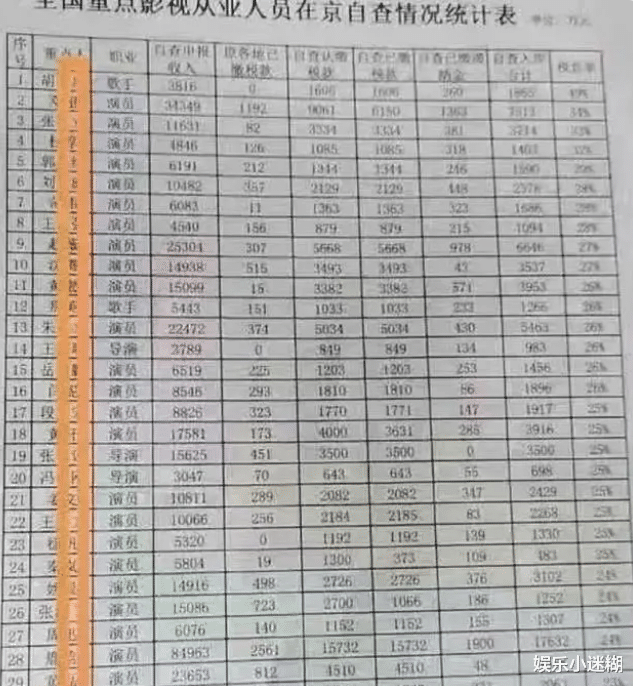 全国重点影视从业人员在京自查情况统计表 单位：万元
序号 重点人 职业 自查申报收入 原各地已缴税款 自查认缴税款 自查已缴税款 自查已缴滞纳金 自查入库合计 税总率
1 胡 歌手 3816 0 1606 1606 260 1865 49%
2 演员 34349 1192 9061 6150 1363 7513 34%
3 张 演员 11631 82 3334 3334 381 3714 33%
4 杜 演员 4846 126 1085 1085 318 1403 32%
5 郭 演员 6191 212 1344 1344 246 1590 29%
6 刘 演员 10482 357 2129 2129 448 2578 28%
7 演员 6083 11 1363 1363 323 1686 28%
8 王 演员 4540 156 879 879 215 1094 28%
9 赵 演员 25304 307 5668 5668 978 6646 27%
10 演员 14938 515 3493 3493 43 3537 27%
11 黄 演员 15099 15 3382 3382 571 3953 26%
12 歌手 5443 151 1033 1033 233 1266 26%
13 朱 演员 22472 374 5034 5034 430 5463 26%
14 王 导演 3789 0 849 849 134 983 26%
15 岳 演员 6519 225 1203 1203 253 1456 26%
16 闫 演员 8546 293 1810 1810 86 1896 26%
17 段 演员 8826 323 1770 1771 147 1917 25%
18 黄 演员 17581 173 4000 3631 285 3916 25%
19 张 导演 15625 451 3500 3500 0 3500 25%
20 冯 导演 3047 70 643 643 55 698 25%
21 姜文 演员 10811 289 2082 2082 347 2429 25%
22 王 演员 10066 256 2184 2185 83 2268 25%
23 演员 5320 0 1192 1192 139 1330 25%
24 秦 演员 5804 19 1300 373 109 483 25%
25 姚 演员 14916 498 2726 2726 376 3102 24%
26 张 演员 15086 723 2700 1066 186 1252 24%
27 周 演员 6076 140 1152 1152 155 1307 24%
28 演员 84963 2561 15732 15732 1900 17632 24%
29 黄 演员 23653 812 4510 4510 48 23%
娱乐小迷糊